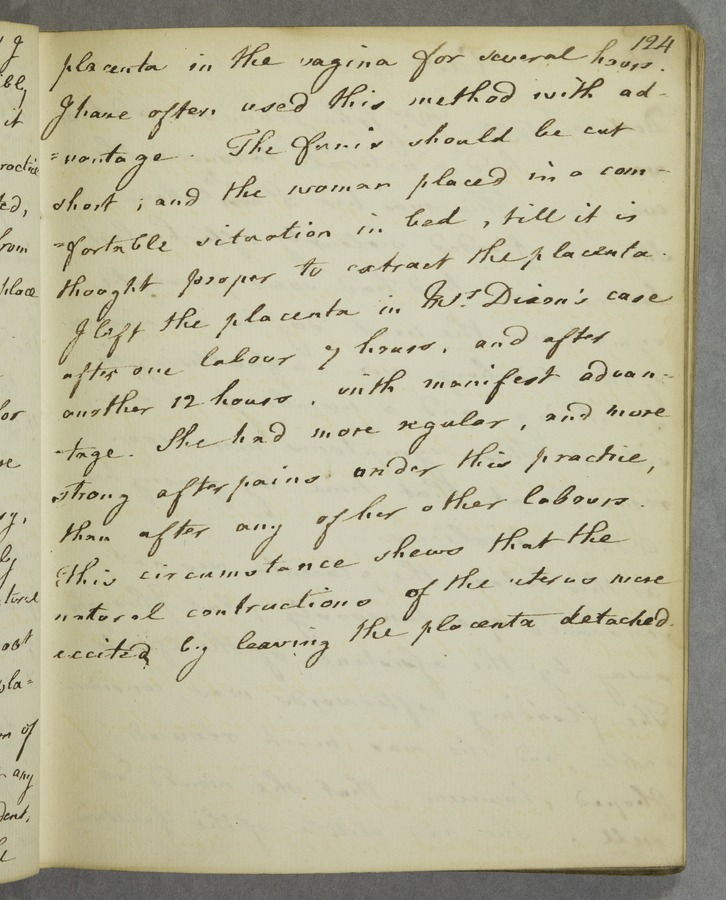 124
placenta in the vagina for several hours.
I have often used this method with ad-
=vantage. The funis should be cut
short; and the woman placed in a com-
=fortable situation in bed, till it is
thought proper to extract the placenta.
I left the placenta in Mrs. Dixon's case
after one labour 7 hours, and after
another 12 hours, with manifest advan-
-tage. She had more regular, and more
strong afterpains under this practice,
than after any of her other labours.
This circumstance shews that the
natural contructions of the uterus more
excited by leaving the placenta detached.